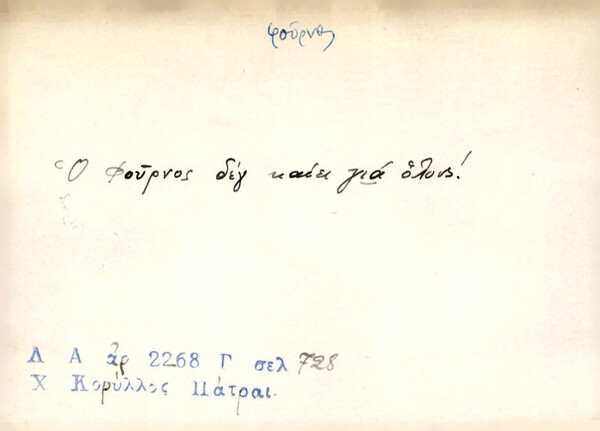 φοῦρνος
Ὁ φοῦρνος δέν καίει γιά ὅλους!
Λ Α ἀρ 2268 Γ σελ 728
Χ Κορύλλος Πάτραι.